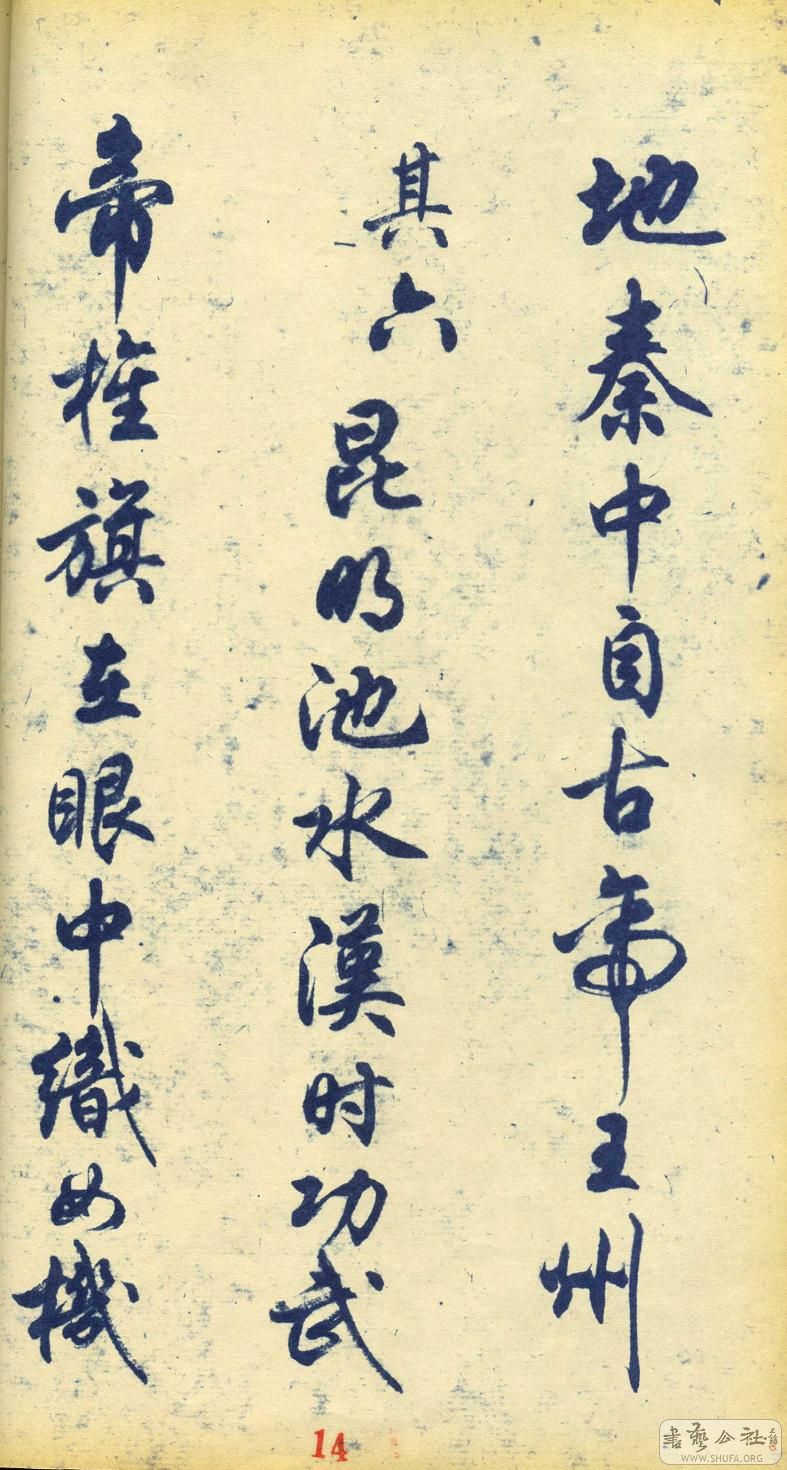 地秦中自古帝王州
其六 昆明池水漢时功武
帝旌旗在眼中織女機
14
書藝公社
WWW.SHUFA.ORG